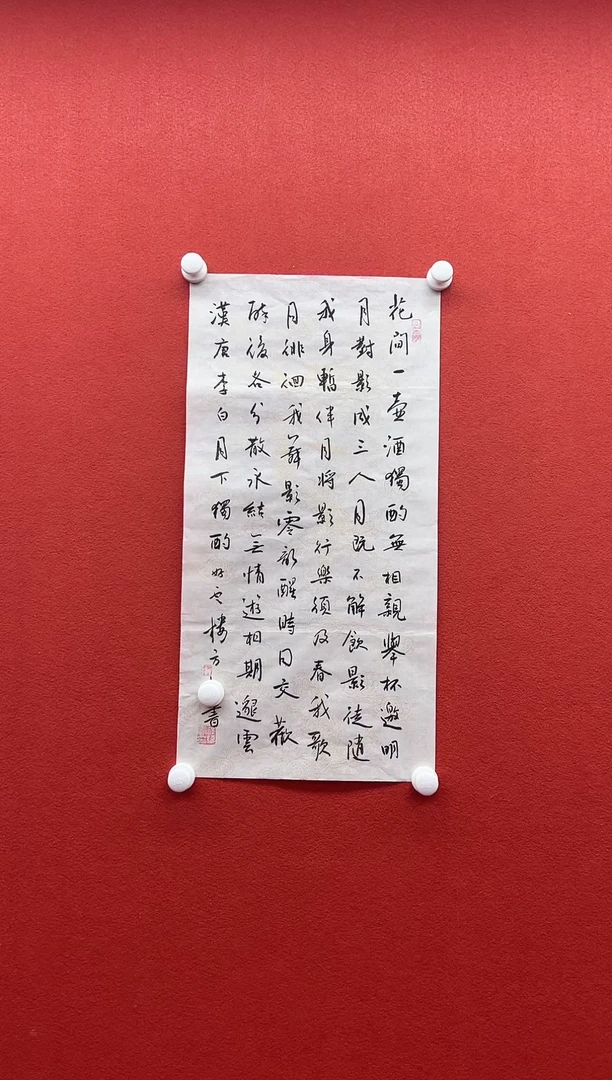 花間一壺酒獨酌無相親舉杯邀明
月對影成三人月既不解飲影徒隨
我身暫伴月將影行樂須及春我歌
月徘徊我舞影零亂醒時同交歡
醉後各分散永結無情遊相期邈雲
漢唐李白月下獨酌 樓方 書